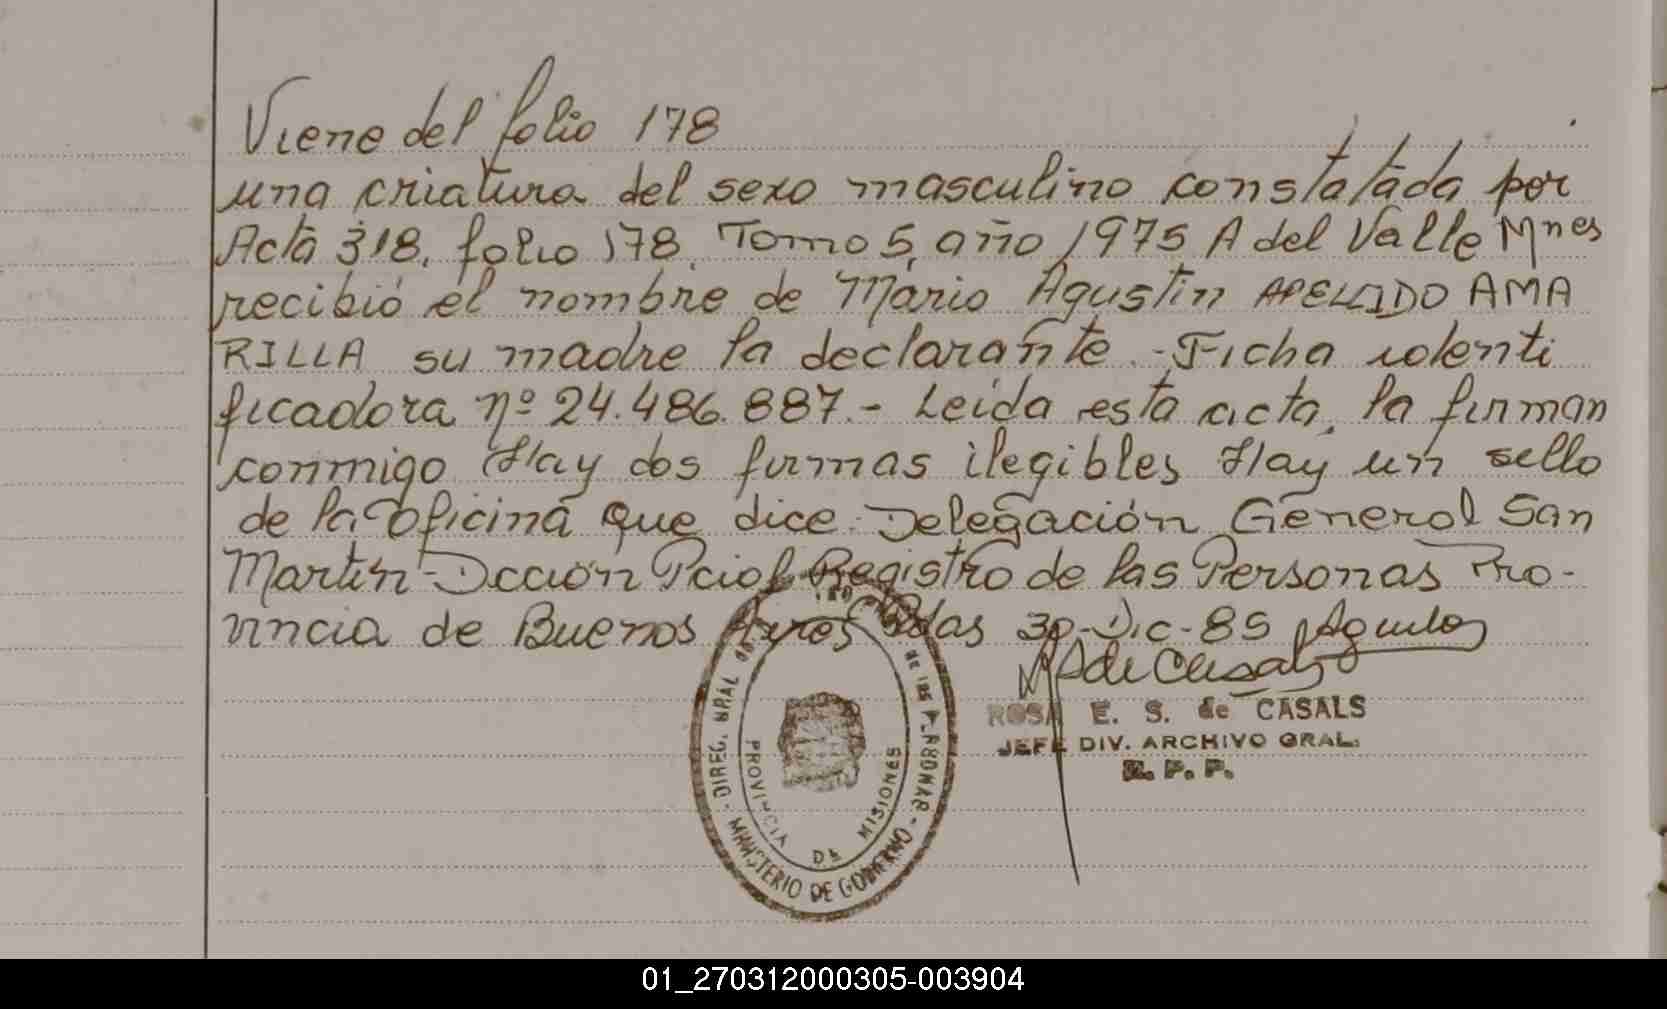 Viene del folio 178
una criatura del sexo masculino constatada por
Acta 318, folio 178. Tomo 5, año 1975 A del Valle Mnes
recibió el nombre de Mario Agustin APELLIDO AMA
RILLA su madre la declarante.-Ficha identi
ficadora nº 24.486.887.- Leida esta acta, la firman
conmigo Hay dos firmas ilegibles Hay un sello
de la oficina que dice. Delegación General San
Martin-Dcción Pcial Registro de las Personas Pro-
vincia de Buenos Aires Pdas 30-Dic-85
de Casals
ROSA E. S. de CASALS
JEFE DIV. ARCHIVO GRAL.
R. P. P.
DIREC. GRAL DE LAS PERSONAS
MINISTERIO DE GOBIERNO
PROVINCIA DE MISIONES
01_270312000305-003904